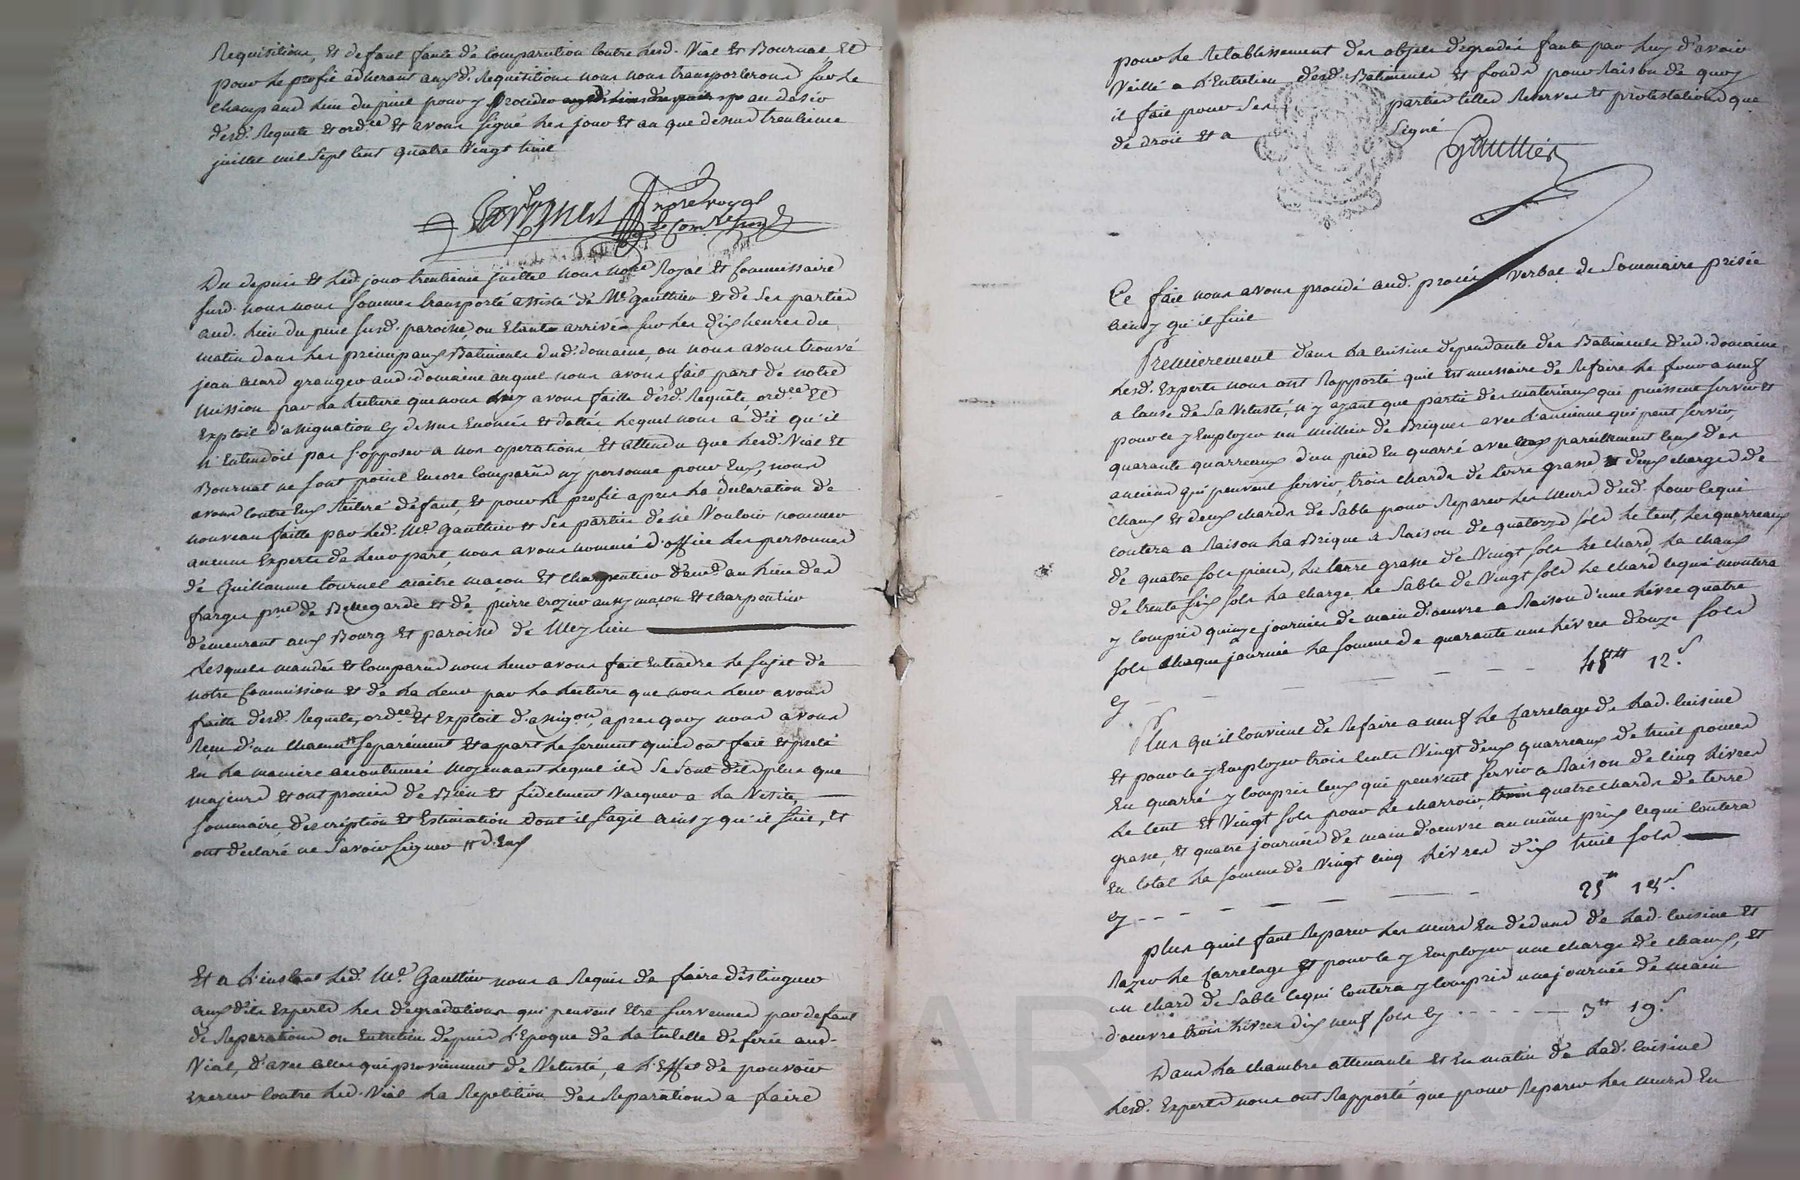 Requisitions, et defaut faute de comparution contre lesd. Vial et Bournat et
pour le profit adherant auxd. Requisitions nous nous transporterons sur le
champ aud. lieu du piuel pour y proceder au desir
desd. Requete et ordce et avons signé les jour et an que dessus trentieme
juillet mil sept cent quatre vingt trois
nore royal
et Comre
Du depuis et led. jour trentieme juillet nous nore Royal et Commissaire
susd. nous nous sommes transporté assisté de Me Gaulthier et de ses parties
aud. lieu du piuel susd. paroisse, ou etants arrivés sur les dix heures du
matin dans les principaux Batiments dud. domaine, ou nous avons trouvé
jean granger aud. domaine auquel nous avons fait part de notre
mission par la lecture que nous luy avons faitte desd. Requête, ordce et
Exploit d'assignation cy dessus Enoncés et dattés lequel nous a dit qu'il
n'Entendoit pas s'opposer a nos operations et attendu que lesd. Vial et
Bournat ne sont point encore comparus ny personne pour Eux, nous
avons contre Eux Réiteré défaut, et pour le profit apres la declaration de
nouveau faitte par led. Me Gaulthier et ses parties de ne Vouloir nommer
aucuns Experts de leur part, nous avons nommé d'office les personnes
de Guillaume tournel maître maçon et charpentier demt au lieu des
farges psse de Bellegarde et de pierre crozier aussy maçon et charpentier
demeurant aux Bourg et paroisse de Meylieu
Lesquels mandés et comparus nous leur avons fait Entendre le sujet de
notre Commission et de la leur par la lecture que nous leur avons
faitte desd. Requete, ordce et Exploit d'assigon, apres quoy nous avons
Reçu d'un chacun separément et a part le serment qu'ils ont fait et preté
En la maniere accoutumée moyennant lequel ils se sont dits plus que
majeurs et ont promis de Bien et fidelment Vacquer a la Visite,
sommaire, description et Estimation dont il s'agit ainsy qu'il suit, et
ont declaré ne savoir signer d'Eux
Et a l'instant led. Me Gaulthier nous a Requis de faire distinguer
auxdits Experts les degradations qui peuvent etre survennes par defaut
de Reparations ou Entretien depuis l'Epoque de la tutelle deferée aud.
Vial, d'avec celles qui proviennent de Vetusté, a l'Effet de pouvoir
exercer contre led. Vial la Repetition des Reparations a faire
pour le Retablissement des objets degradés faute par luy d'avoir
Veillé a l'Entretien desd. Batiments et fonds pour Raison de quoy
il fait pour ses parties telles Reserves et protestations que
de droit et a signé
Gaulthier
Ce fait nous avons procédé aud. procès verbal de sommaire prisée
ainsy qu'il suit
Premierement dans la cuisine dependante des Batiments dud. domaine
lesd. Experts nous ont Rapporté qu'il Est necessaire de Refaire le four a neuf
a cause de sa Vetusté, n'y ayant que partie des materiaux qui puissent servir et
pour ce y Employer un millier de Briques avec l'ancienne qui peut servir,
quarante quarreaux d'un pied en quarré avec pareillement ceux des
anciens qui peuvent servir, trois chards de terre grasse deux charges de
chaux et deux chards de sable pour Reparer les meurs dud. four lequi
coutera a Raison la Brique a Raison de quatorze sols le cent, les quarreaux
de quatre sols piece, la terre grasse de Vingt sols le chard, la chaux
de trente six sols la charge, le sable de Vingt sols le chard lequi montera
y compris quinze journées de main d'oeuvre a Raison d'une livre quatre
sols chaque journée la somme de quarante une livres douze sols
cy - - - - - 41tt 12s
Plus qu'il convient de Refaire a neuf le carrelage de lad. cuisine
et pour ce y Employer trois cents Vingt deux quarreaux de huit pouces
En quarré y compris ceux qui peuvent servir a Raison de cinq livres
le cent et Vingt sols pour le charroir, quatre chards de terre
grasse, et quatre journées de main d'oeuvre au même prix lequi coutera
En total la somme de Vingt cinq livres dix huit sols
cy - - - - - 25tt 18s
plus qu'il faut Reparer les meurs En dedans de lad. cuisine et
le carrelage et pour ce y Employer une charge de chaux, et
un chard de sable lequi coutera y compris une journée de main
d'oeuvre trois livres dix neuf sols cy - - - - 3tt 19s
Dans la chambre attenante et en matin de lad. cuisine
lesd. Experts nous ont Rapporté que pour Reparer les meurs En